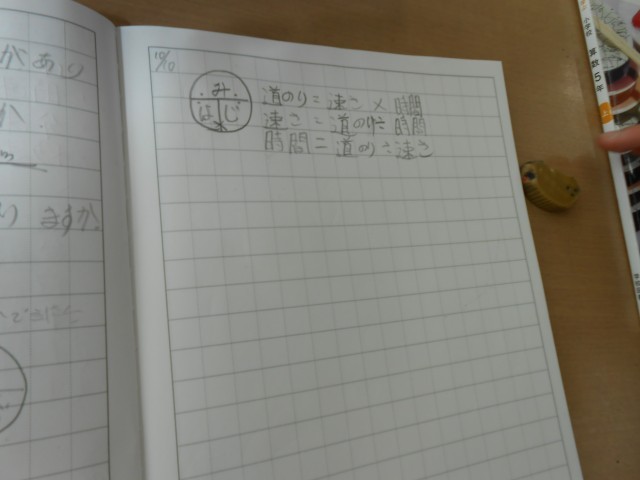 があり
か
りますか
10/10
み
は じ
道のり=速さ×時間
速さ=道のり÷時間
時間=道のり÷速さ
算数5年